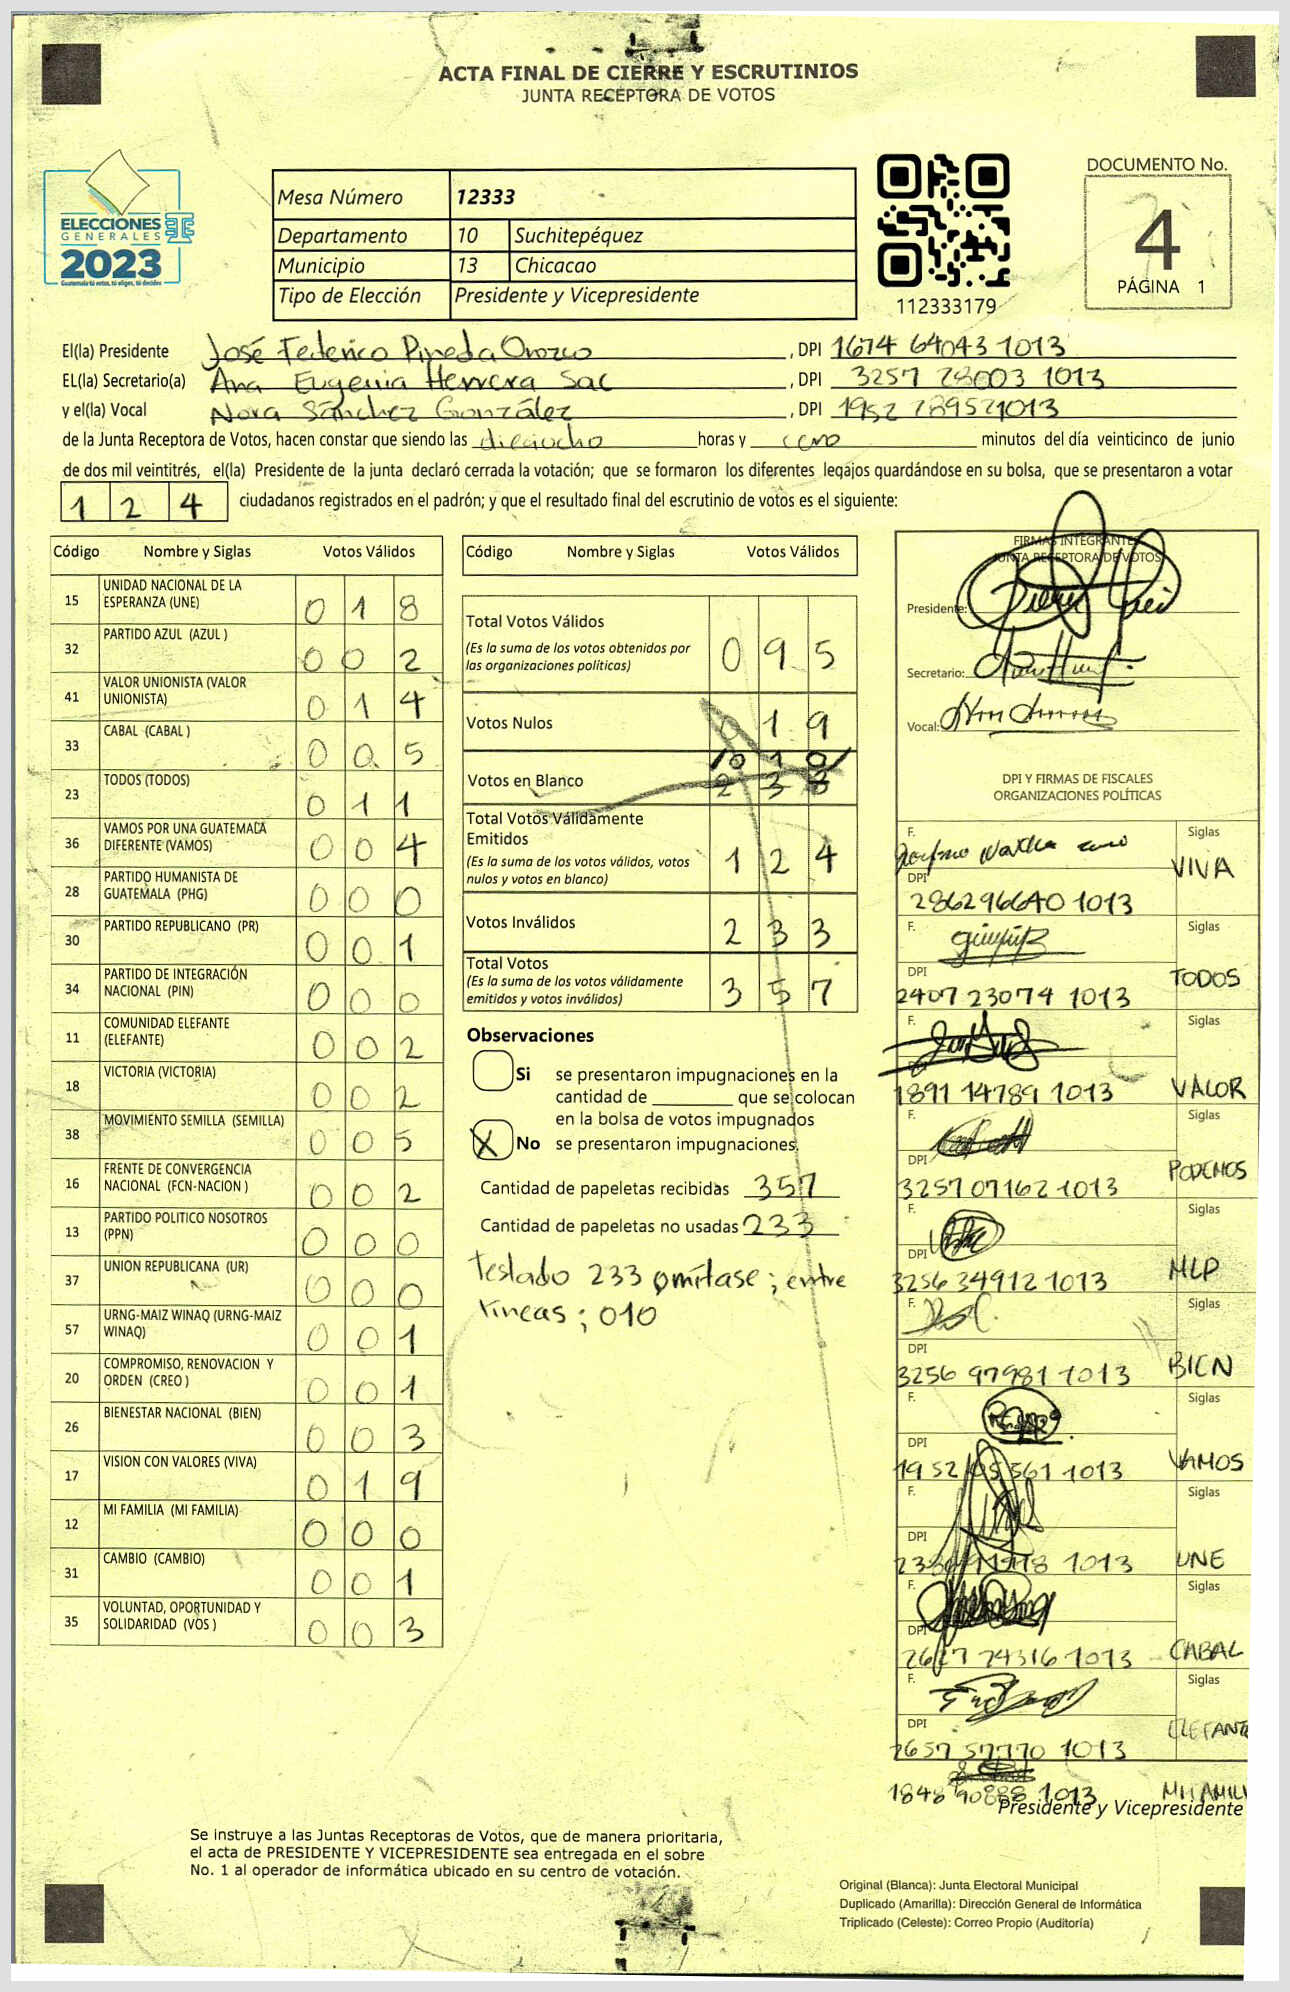 ACTA FINAL DE CIERRE Y ESCRUTINIOS
JUNTA RECEPTORA DE VOTOS
ELECCIONES
GENERALES
2023
Guatemala tú votas, tú eliges, tú decides
Mesa Número 12333
Departamento 10 Suchitepéquez
Municipio 13 Chicacao
Tipo de Elección Presidente y Vicepresidente
112333179
DOCUMENTO No.
4
PÁGINA 1
El(la) Presidente José Federico Pineda Orozco, DPI 1674 64043 1013
EL(la) Secretario(a) Ana Eugenia Herrera Sac, DPI 3257 28003 1013
y el(la) Vocal Nora Sánchez González, DPI 1952 28952 1013
de la Junta Receptora de Votos, hacen constar que siendo las dieciocho horas y cero minutos del día veinticinco de junio
de dos mil veintitrés, el(la) Presidente de la junta declaró cerrada la votación; que se formaron los diferentes legajos guardándose en su bolsa, que se presentaron a votar
1 2 4 ciudadanos registrados en el padrón; y que el resultado final del escrutinio de votos es el siguiente:
Código Nombre y Siglas Votos Válidos
15 UNIDAD NACIONAL DE LA ESPERANZA (UNE) 0 1 8
32 PARTIDO AZUL (AZUL ) 0 0 2
41 VALOR UNIONISTA (VALOR UNIONISTA) 0 1 4
33 CABAL (CABAL ) 0 0 5
23 TODOS (TODOS) 0 1 1
36 VAMOS POR UNA GUATEMALA DIFERENTE (VAMOS) 0 0 4
28 PARTIDO HUMANISTA DE GUATEMALA (PHG) 0 0 0
30 PARTIDO REPUBLICANO (PR) 0 0 1
34 PARTIDO DE INTEGRACIÓN NACIONAL (PIN) 0 0 0
11 COMUNIDAD ELEFANTE (ELEFANTE) 0 0 2
18 VICTORIA (VICTORIA) 0 0 2
38 MOVIMIENTO SEMILLA (SEMILLA) 0 0 5
16 FRENTE DE CONVERGENCIA NACIONAL (FCN-NACION ) 0 0 2
13 PARTIDO POLITICO NOSOTROS (PPN) 0 0 0
37 UNION REPUBLICANA (UR) 0 0 0
57 URNG-MAIZ WINAQ (URNG-MAIZ WINAQ) 0 0 1
20 COMPROMISO, RENOVACION Y ORDEN (CREO ) 0 0 1
26 BIENESTAR NACIONAL (BIEN) 0 0 3
17 VISION CON VALORES (VIVA) 0 1 9
12 MI FAMILIA (MI FAMILIA) 0 0 0
31 CAMBIO (CAMBIO) 0 0 1
35 VOLUNTAD, OPORTUNIDAD Y SOLIDARIDAD (VOS ) 0 0 3
Código Nombre y Siglas Votos Válidos
Total Votos Válidos 0 9 5
(Es la suma de los votos obtenidos por
las organizaciones políticas)
Votos Nulos 0 1 9
/0 1 0/
Votos en Blanco 2 3 3
Total Votos Válidamente
Emitidos 1 2 4
(Es la suma de los votos válidos, votos
nulos y votos en blanco)
Votos Inválidos 2 3 3
Total Votos 3 5 7
(Es la suma de los votos válidamente
emitidos y votos inválidos)
Observaciones
Si se presentaron impugnaciones en la
cantidad de ________ que se colocan
en la bolsa de votos impugnados
X No se presentaron impugnaciones.
Cantidad de papeletas recibidas 357
Cantidad de papeletas no usadas 233
Testado 233 omítase; entre
líneas; 010
FIRMAS INTEGRANTES
JUNTA RECEPTORA DE VOTOS
Presidente:
Secretario:
Vocal:
DPI Y FIRMAS DE FISCALES
ORGANIZACIONES POLÍTICAS
F. Siglas
VIVA
DPI
286296640 1013
F. Siglas
DPI TODOS
2407 23074 1013
F. Siglas
1891 14789 1013 VALOR
F. Siglas
DPI PODEMOS
3257 07162 1013
F. Siglas
DPI MLP
3256 34912 1013
F. Siglas
DPI BIEN
3256 97981 1013
F. Siglas
DPI VAMOS
1952 561 1013
F. Siglas
DPI UNE
1013
F. Siglas
DPI CABAL
2627 24316 1013
F. Siglas
DPI ELEFANTE
2657 57770 1013
1848 90888 1013 MI FAMILI
Presidente y Vicepresidente
Se instruye a las Juntas Receptoras de Votos, que de manera prioritaria,
el acta de PRESIDENTE Y VICEPRESIDENTE sea entregada en el sobre
No. 1 al operador de informática ubicado en su centro de votación.
Original (Blanca): Junta Electoral Municipal
Duplicado (Amarilla): Dirección General de Informática
Triplicado (Celeste): Correo Propio (Auditoría)